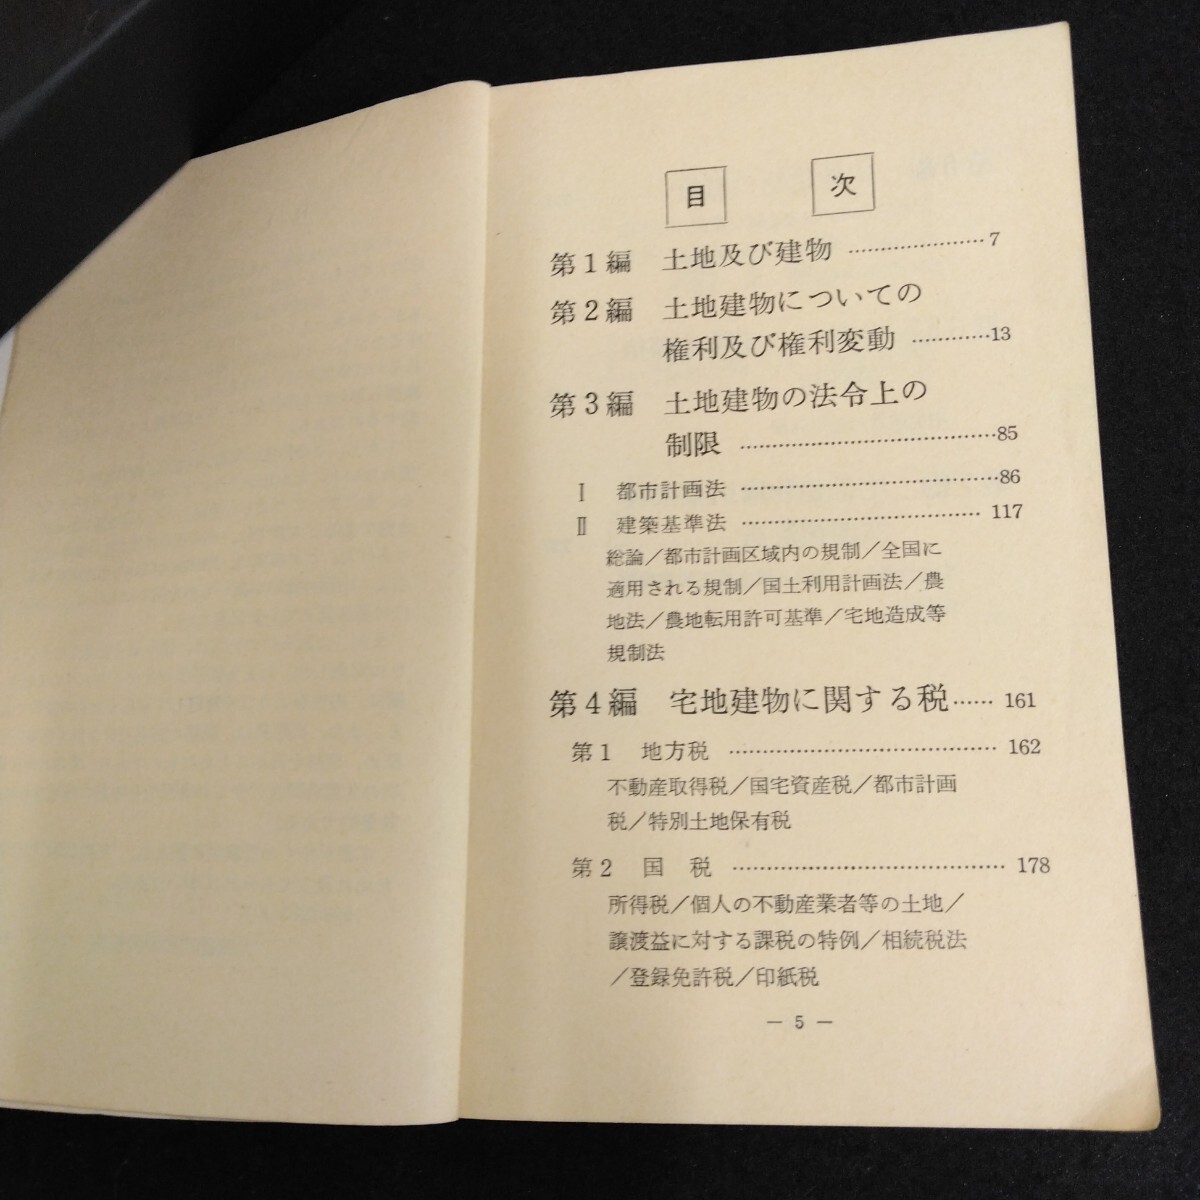 目 次
第1編 土地及び建物 …………………7
第2編 土地建物についての
権利及び権利変動 …………13
第3編 土地建物の法令上の
制限 …………………………………85
Ⅰ 都市計画法 …………………………………86
Ⅱ 建築基準法 ……………………………… 117
総論/都市計画区域内の規制/全国に
適用される規制/国土利用計画法/農
地法/農地転用許可基準/宅地造成等
規制法
第4編 宅地建物に関する税…… 161
第1 地方税 ………………………………… 162
不動産取得税/国宅資産税/都市計画
税/特別土地保有税
第2 国 税 ………………………………… 178
所得税/個人の不動産業者等の土地/
譲渡益に対する課税の特例/相続税法
/登録免許税/印紙税
― 5 ―